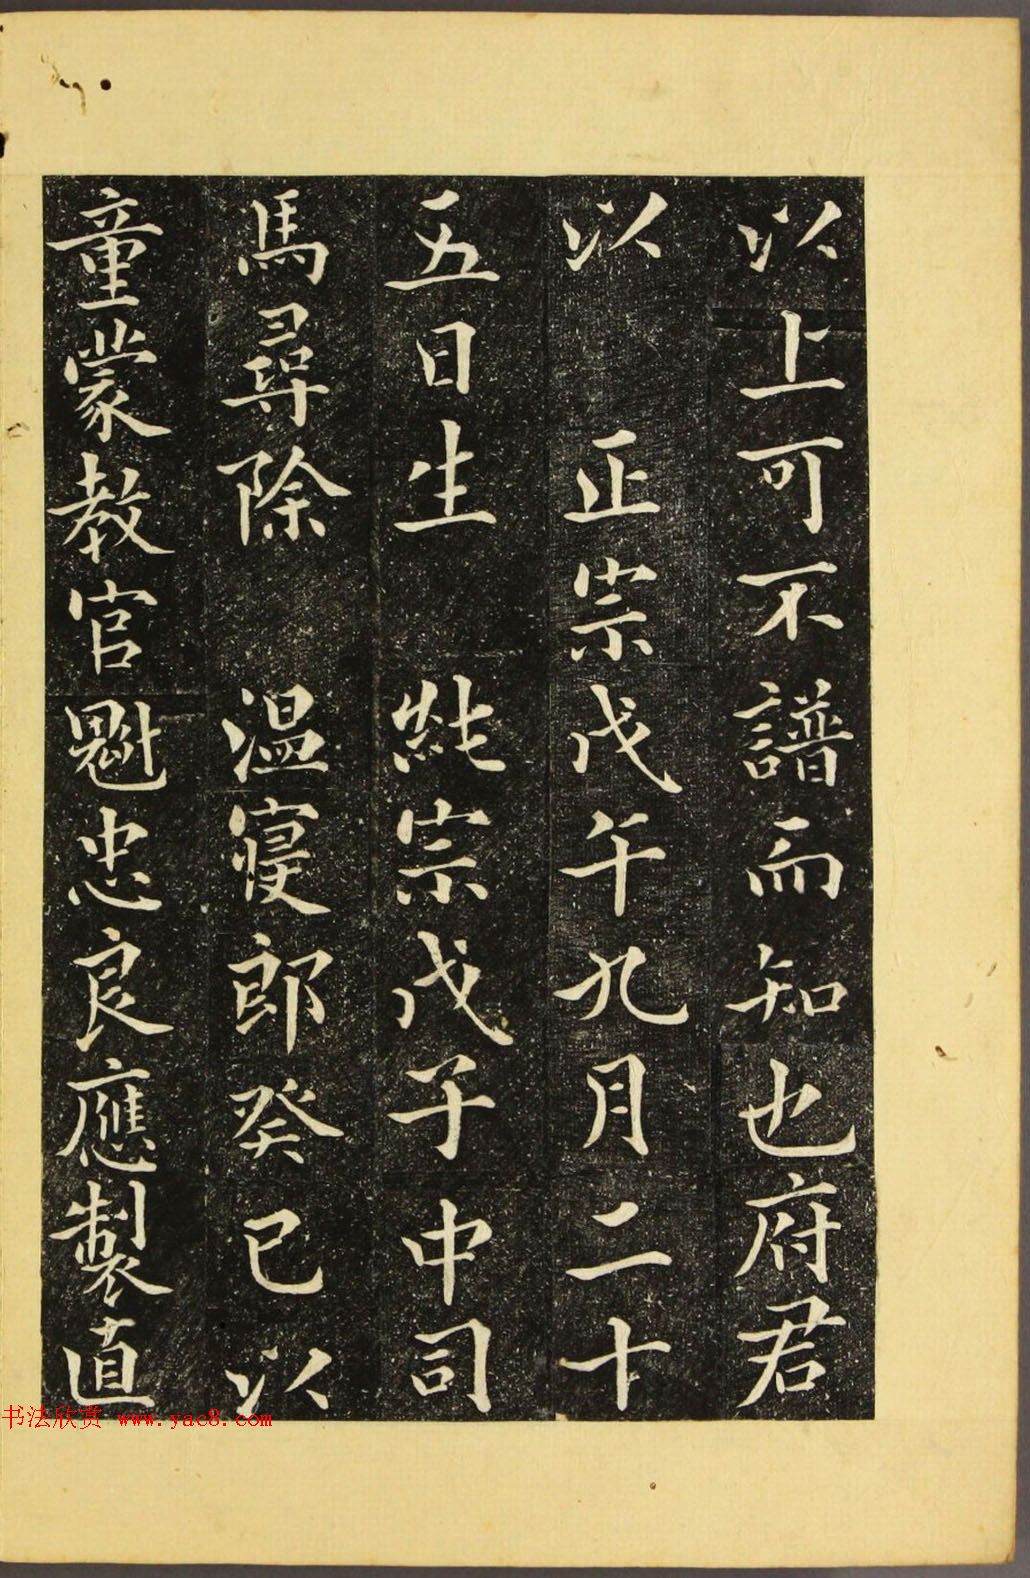 以上可不譜而知也府君
以　正宗戊午九月二十
五日生　純宗戊子中司
馬尋除　温寑郎癸巳以
童蒙教官魁忠良應製直
书法欣赏 www.yac8.com